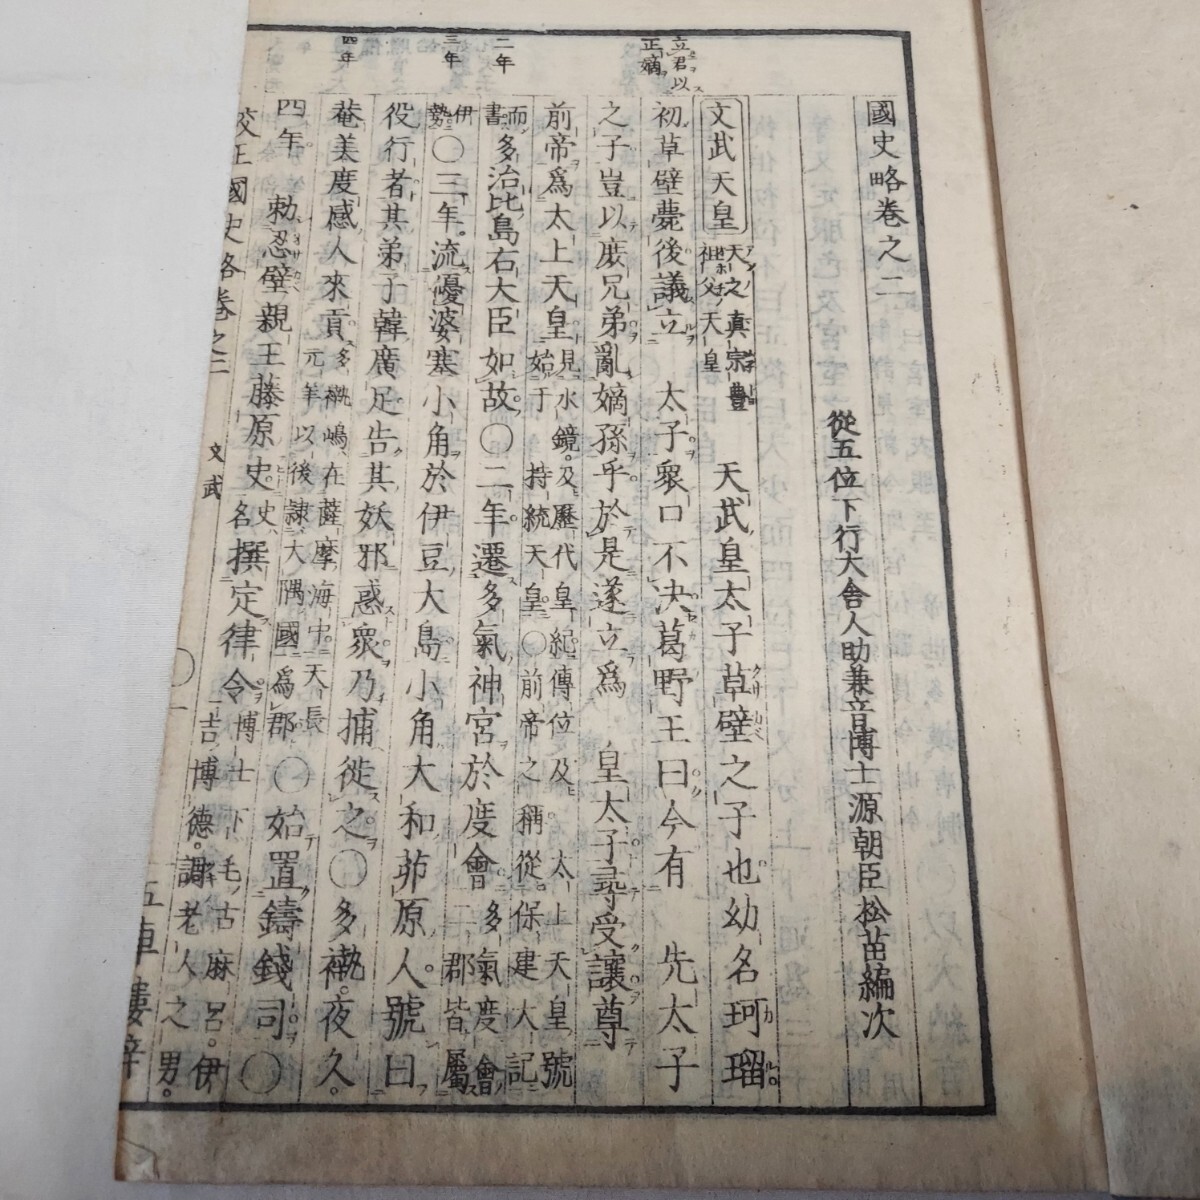 國史略卷之二
從五位下行大舍人助兼音博士源朝臣松苗編次
立君以
正嫡
文武天皇
天之真宗豊
祖父天皇
天武皇太子草壁之子也幼名珂瑠
初草壁薨後議立 太子衆口不決葛野王曰今有 先太子
之子豈以庶兄弟亂嫡孫乎於是遂立爲 皇太子尋受讓尊
前帝爲太上天皇
見水鏡。及歷代皇紀傳位及 太上天皇號
始于 持統天皇〇前帝之稱從。保建大記
二年
而
書
多治比島右大臣如故〇二年。遷多氣神宮於度會
多氣度會
二郡皆屬
伊
勢。
三年
〇三年。流優婆塞小角於伊豆大島小角大和茆原人。號曰
役行者其弟子韓廣足告其妖邪惑衆乃捕徙之〇多褹。夜久。
菴美度感人來貢
多褹嶋、在薩摩海中。天長
元年以後隷大隅國爲郡
〇始置鑄錢司〇
四年
四年。 勅忍壁親王藤原史
史
名
撰定律令
博士下毛古麻呂。伊
吉博德。調老人之男。
校正國史略卷之二 文武 〇一 五車樓梓